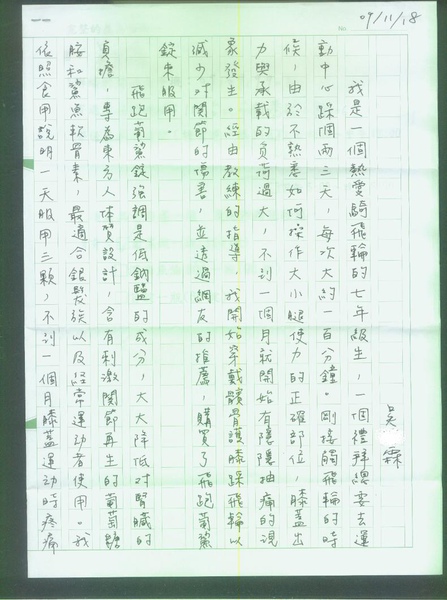 09/11/18
吳 霖
我是一個熱愛騎飛輪的七年級生，一個禮拜總要去運
動中心踩個兩三天，每次大約一百分鐘。剛接觸飛輪的時
候，由於不熟悉如何操作大小腿使力的正確部位，膝蓋出
力與承載的負荷過大，不到一個月就開始有隱隱抽痛的現
象發生。經由教練的指導，我開始穿戴髕骨護膝踩飛輪以
減少對關節的傷害，並透過網友的推薦，購買了飛跑葡鯊
錠來服用。
飛跑葡鯊錠強調是低鈉鹽的成分，大大降低對腎臟的
負擔，專為東方人體質設計，含有刺激關節再生的葡萄糖
胺和鯊魚軟骨素，最適合銀髮族以及經常運動者使用。我
依照食用說明一天服用三顆，不到一個月膝蓋運動時疼痛